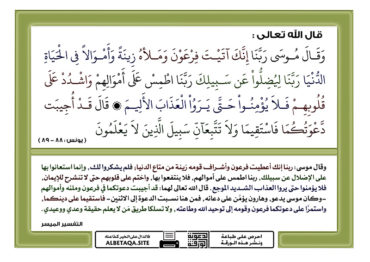 قال الله تعالى :
وَقَالَ مُوسَى رَبَّنَا إِنَّكَ آتَيْتَ فِرْعَوْنَ وَمَلَأَهُ زِينَةً وَأَمْوَالًا فِي الْحَيَاةِ
الدُّنْيَا رَبَّنَا لِيُضِلُّوا عَن سَبِيلِكَ رَبَّنَا اطْمِسْ عَلَى أَمْوَالِهِمْ وَاشْدُدْ عَلَى
قُلُوبِهِمْ فَلَا يُؤْمِنُوا حَتَّى يَرَوُا الْعَذَابَ الْأَلِيمَ ۞ قَالَ قَدْ أُجِيبَت
دَّعْوَتُكُمَا فَاسْتَقِيمَا وَلَا تَتَّبِعَانِّ سَبِيلَ الَّذِينَ لَا يَعْلَمُونَ
( يونس : ٨٨ - ٨٩ )
وقال موسى: ربنا إنك أعطيت فرعون وأشراف قومه زينة من متاع الدنيا؛ فلم يشكروا لك، وإنما استعانوا بها
على الإضلال عن سبيلك، ربنا اطمس على أموالهم، فلا ينتفعوا بها، واختم على قلوبهم حتى لا تنشرح للإيمان,
فلا يؤمنوا حتى يروا العذاب الشديد الموجع. قال الله تعالى لهما: قد أجيبت دعوتكما في فرعون وملئه وأموالهم
-وكان موسى يدعو, وهارون يؤمِّن على دعائه, فمن هنا نسبت الدعوة إلى الاثنين- فاستقيما على دينكما,
واستمرَّا على دعوتكما فرعون وقومه إلى توحيد الله وطاعته, ولا تسلكا طريق مَن لا يعلم حقيقة وعدي ووعيدي.
التفسير الميسر
فالدال على الخير كفاعله
ALBETAQA.SITE
احرص على طباعة
ونشر هذه الورقة